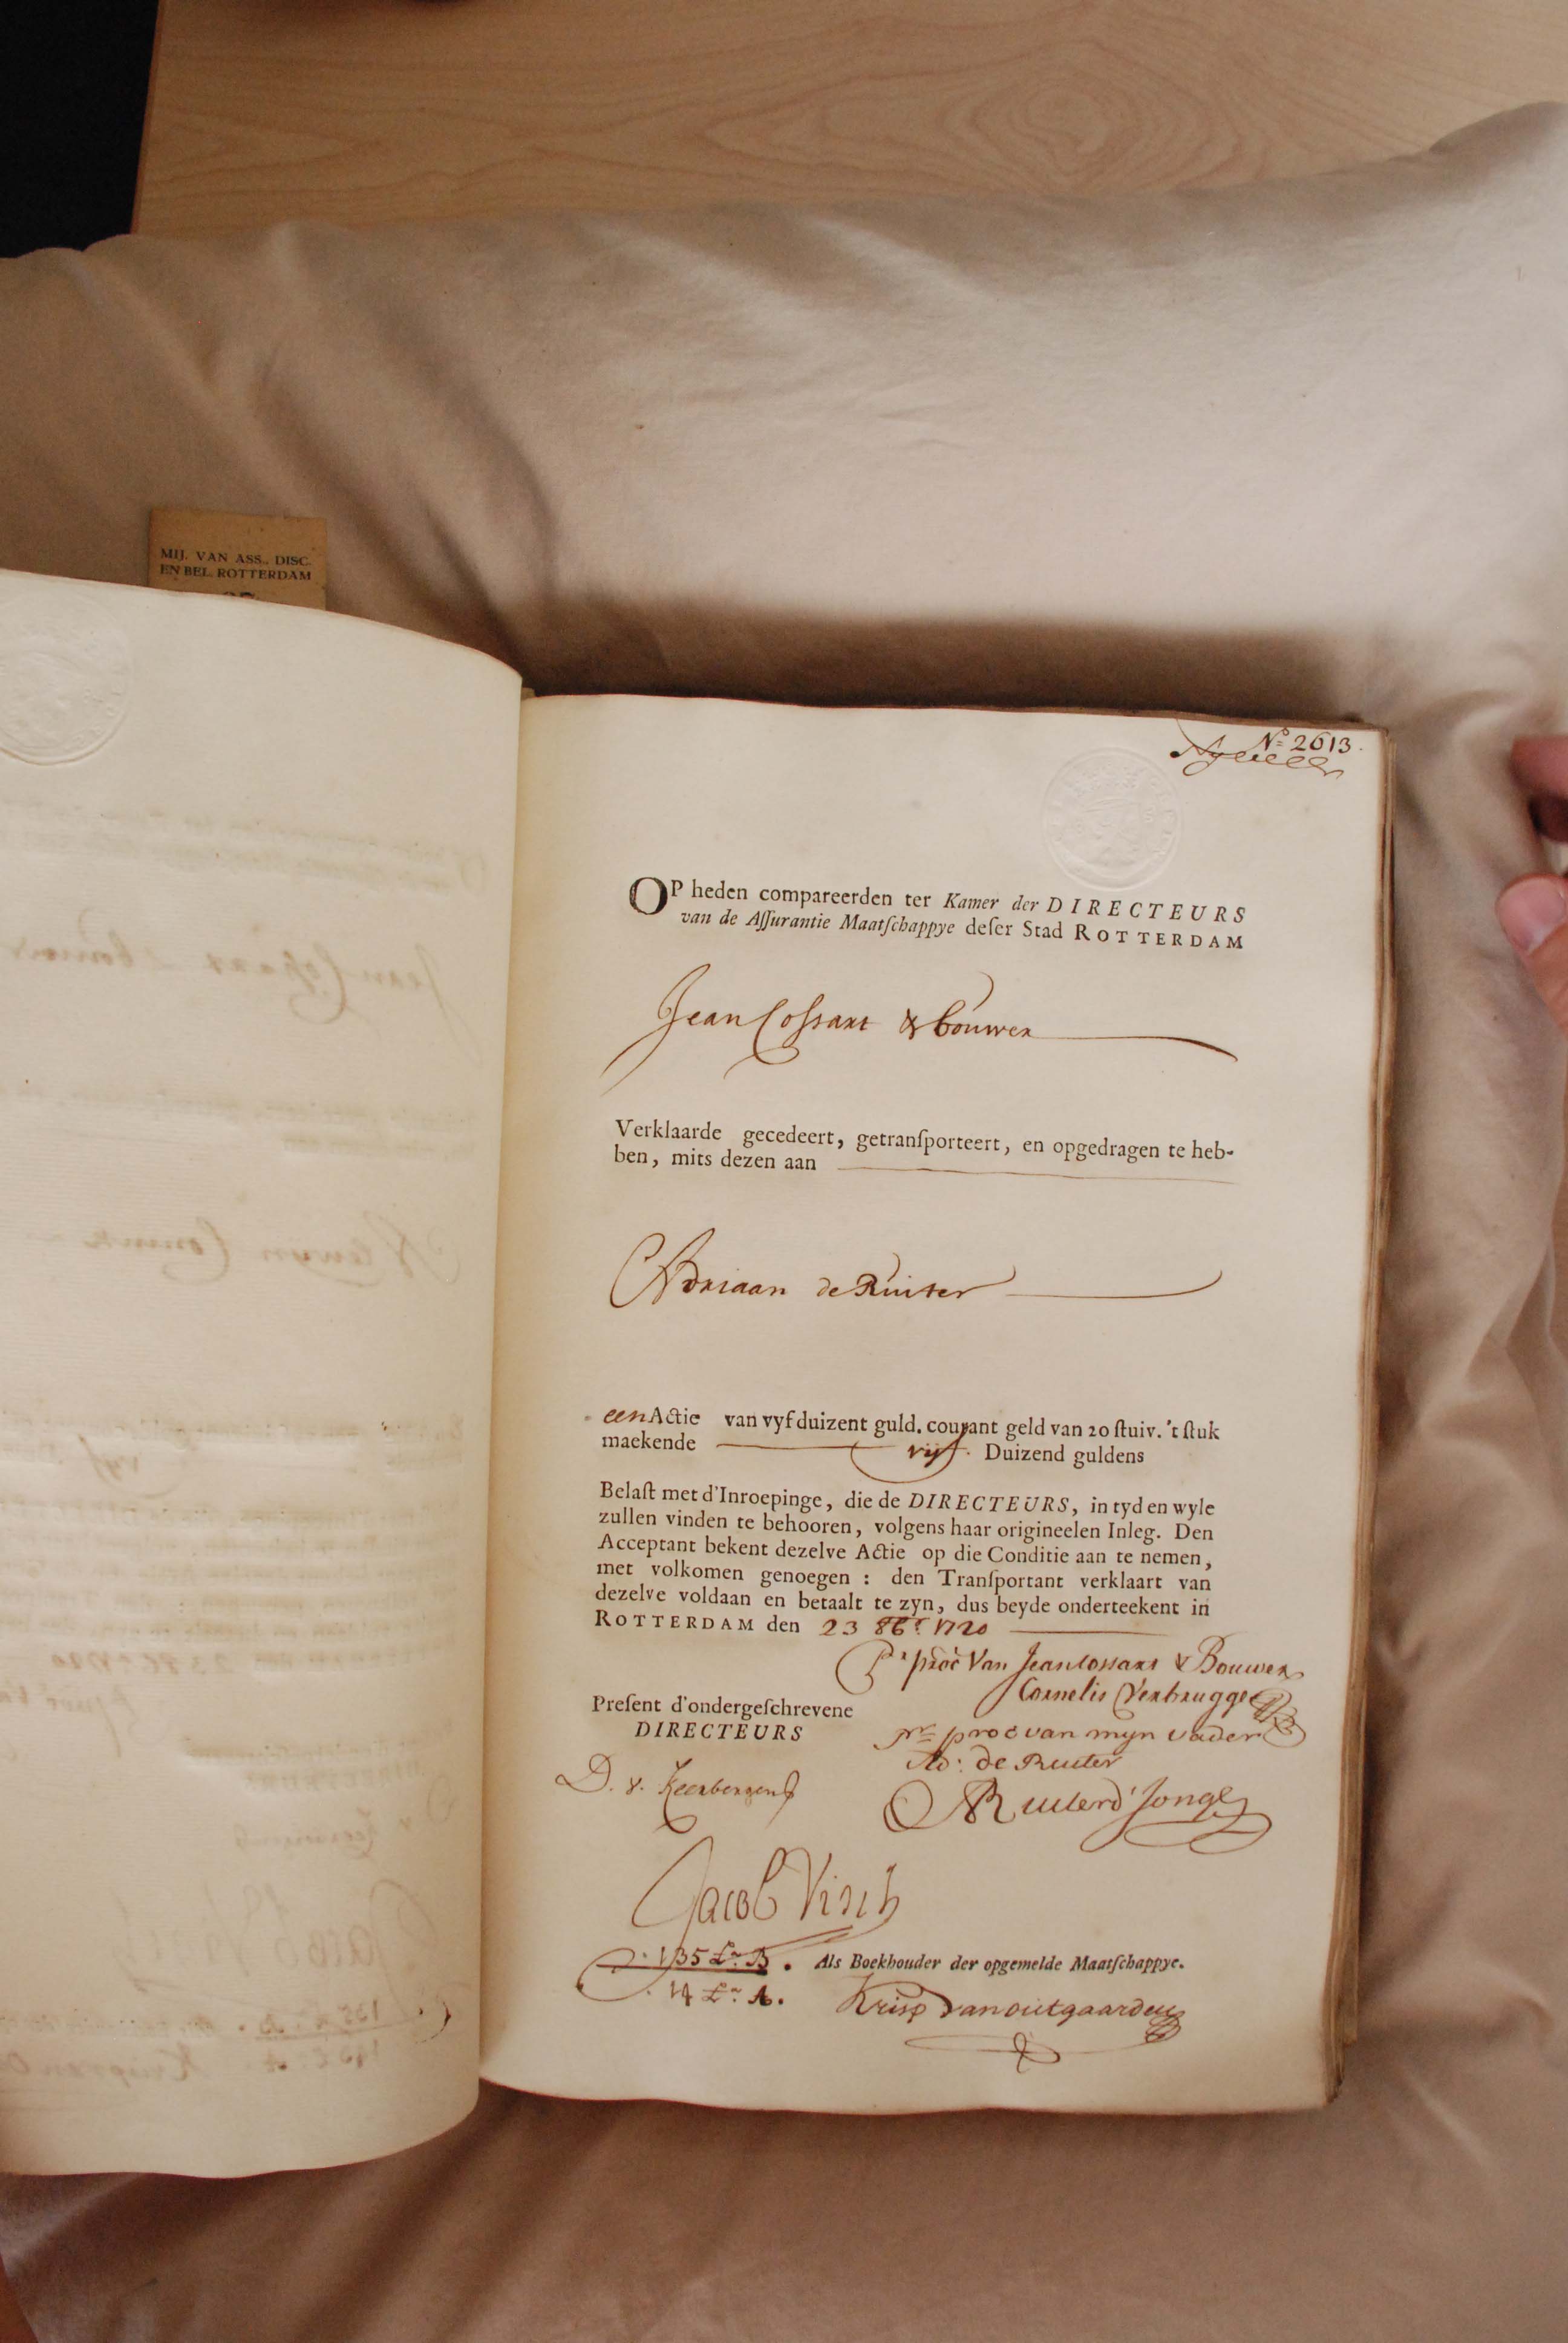 MIJ. VAN ASS., DISC.
EN BEL. ROTTERDAM
No 2613.
OP heden compareerden ter Kamer der DIRECTEURS
van de Aſſurantie Maatſchappye deſer Stad ROTTERDAM
Jean Coſsart & Bouwer
Verklaarde gecedeert, getranſporteert, en opgedragen te heb-
ben, mits dezen aan
Adriaan de Ruiter
een Actie van vyf duizent guld. courant geld van 20 ſtuiv. 't ſtuk
maekende vijf Duizend guldens
Belaſt met d'Inroepinge, die de DIRECTEURS, in tyd en wyle
zullen vinden te behooren, volgens haar origineelen Inleg. Den
Acceptant bekent dezelve Actie op die Conditie aan te nemen,
met volkomen genoegen : den Tranſportant verklaart van
dezelve voldaan en betaalt te zyn, dus beyde onderteekent in
ROTTERDAM den 23 8br 1720
Pr proc Van Jean Cossart & Bouwer
Cornelis Verbrugge
Preſent d'ondergeſchrevene
DIRECTEURS
pr proc van myn vader
Ad: de Ruiter
D. v. Keerbergen
A Ruiter d' Jonge
Jacob Visch
135 Lr B. Als Boekhouder der opgemelde Maatſchappye.
14 Lr A. Krisp van outgaarden